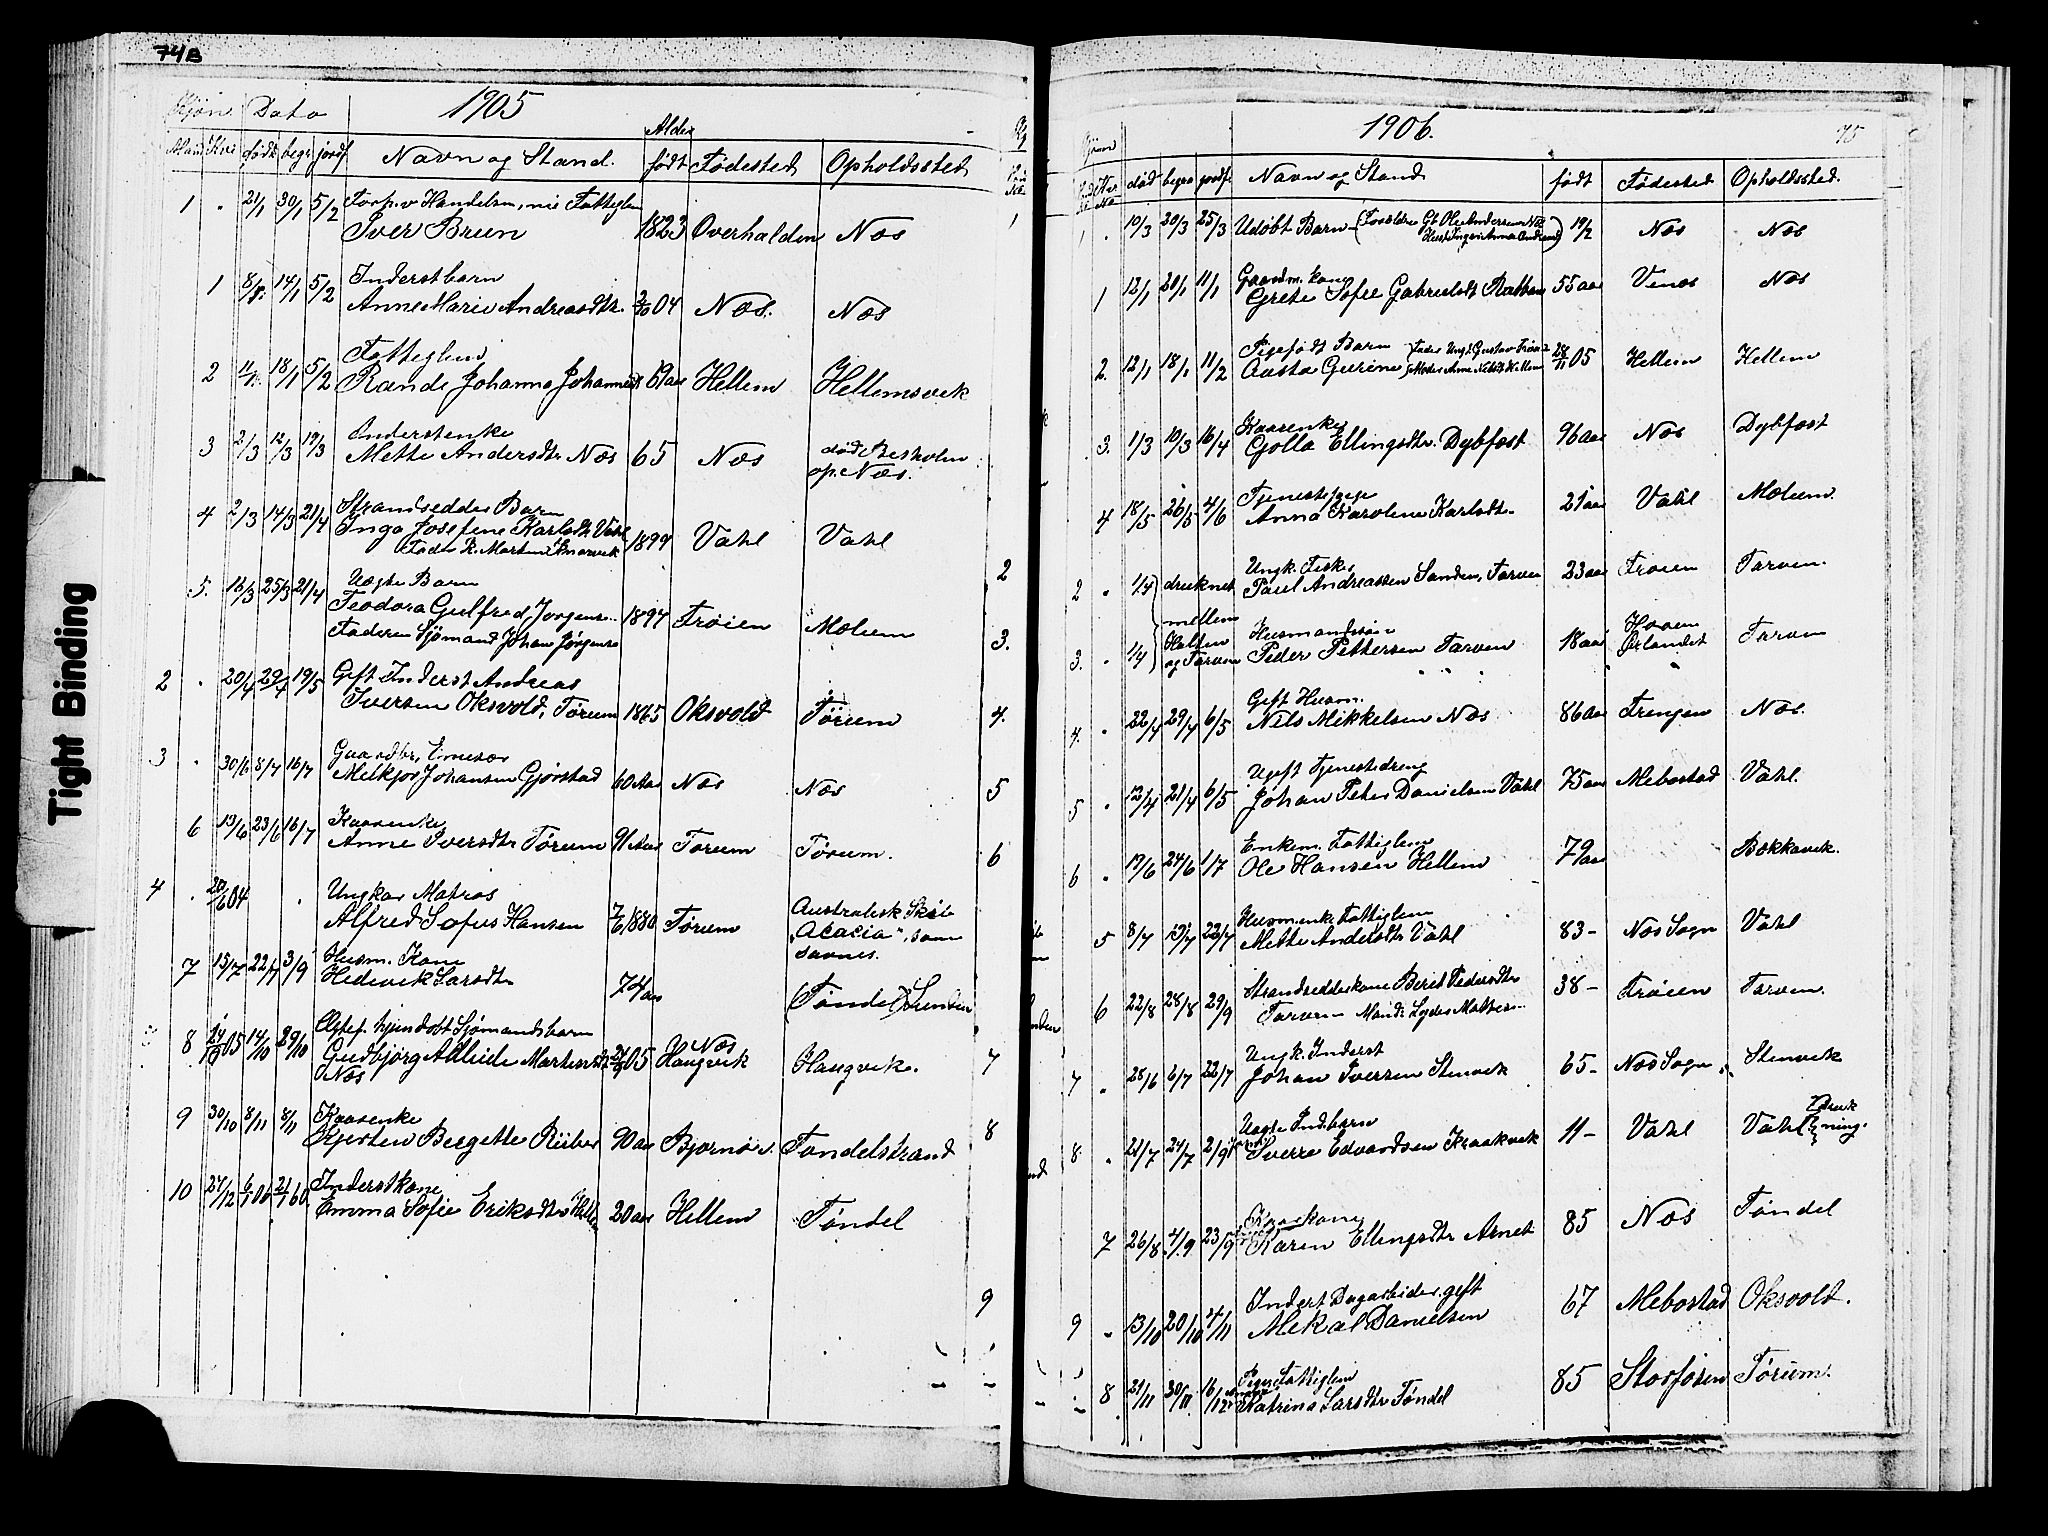 74B
Kjøn Dato 1905
Alder
Mand Kvi født begr jordf Navn og Stand. født Fødested Opholdssted
1 . 21/1 30/1 5/2 Forp. v Handelsm, nu Fattiglem
Iver Brun 1823 Overhalden Næs
1 14/1 5/2 Inderstbarn
Anne Marie Andreasdtr. 04 Næs. Næs
2 18/1 5/2 Fatteglem
Rande Johanna 69 aar Hellem Hellemsvik
3 2/3 12/3 19/3 Inderstenke
Mette Andersdtr Næs 65 Næs død Besholm
op. Næs.
4 2/3 14/3 21/4 Strandsedder Barn
Inga Josefine Karlsdtr Vahl 1899 Vahl Vahl
5. 16/3 25/3 21/4 Uægte Barn
Teodora Gulfred Jørgens.. 1897 Frøien Mælum
Faderen Sjømand Johan Jørgensen
2 . 20/4 29/4 19/5 Gift Inderst Andreas
Iversen Oksvold, Tørum 1865 Oksvold Tørum
3 . 30/6 8/7 16/7 Gaardbr,
Melkjor Johansen Gjørstad 60 Aar Næs Næs
6 13/6 23/6 16/7 Kaarenke
Anne Iversdtr Tørum 91 Aar Tørum Tørum.
4 . 04 . Ungkar Matros
Alfred Sofus Hansen 7/6 1880 Tørum Australisk Skib
"Acacia", som
savnes.
7 15/7 22/7 3/9 Husm. Kone
Hedevik Larsdtr 74 aar (Tøndel Sunden
8 05 14/10 29/10 Ægtef. hjemdøbt Sjømandsbarn
Gudbjørg Adleide 05 Næs Haugvik Haugvik.
Næs
9 30/10 8/11 8/11 Kaarenke
Kjersten Bergette Riiber 90 aar Bjørnør. Tøndelstrand
10 27/12 6/1 06 21/1 60 Inderstkone
Emma Sofie Eriksdtr 20 aar Hellem Tøndel
Tight Binding
2
3.
4.
5
6
7
8
9
1906. 75
Kjøn
død begra jordf Navn og Stand født Fødested Opholdssted.
1 . 10/3 20/3 25/3 Udøbt Barn (Forældre Gb. Ole Andersen Næs
19/2 Næs Næs
1 12/1 20/1 11/1 Gaardm. kone
Grete Sofie Gabrielsdt 55 aar Vinæs Næs
2. 12/1 18/1 11/2 Pigefødt Barn
Aasta Gurine 28/11 05 Hellem Hellem
3. 1/3 10/3 16/4 Kaarenke
Golla Ellingsdtr. Dybfest 96 aar Næs Dybfest
4 18/5 26/5 4/6 Tjenestepige
Anna Karoline Karlsdtr 21 aar Vahl Mælum.
2 . 1/4 druknet Ungk. Fisker
Paul Andreassen Sanden, Tarven 23 aar Frøien Tarven.
mellem
3. . 1/4 Halten
og Tarven Husmandssøn
Peder Pettersen Tarven 18 aar Ørlandet Tarven
4. . 22/4 29/4 6/5 Gift Husm.
Nils Mikkelsen Næs 86 aar Frengen Næs.
5 . 12/4 21/4 6/5 Ugift Tjenestedreng
Johan Peter Danielsen Vahl 75 aar Mebostad Vahl.
6 . 17/6 24/6 1/7 Enkem. Fattiglem
Ole Hansen Hellem 79 aar Bekkavik.
5 8/7 22/7 Husm. enke Fattiglem
Mette Andersdtr Vahl 83 - Næs Sogn Vahl
6 22/8 28/8 29/9 Strandsedderkone Berit Pedersdtr
Tarven 38 - Frøien Tarven.
7 . 28/6 6/7 22/7 Ungk. Inderst
Johan Iversen Stenvik 65 - Næs Sogn Stenvik
8. . 21/7 24/7 2/9 Uægte
Sverre Edvardsen Kraakvik 11 - Vahl Vahl (Druk
ning.
7 26/8 4/9 23/9 Kaarkone
Karen Ellingsdtr Arnet 85 Næs Tøndel
9 . 13/10 20/10 4/11 Inderst Dagarbeider, gift
Mekal Danielsen 67 Mebostad Oksvold.
8 21/11 30/11 16/12 Pige Fattiglem
Katrina Larsdtr Tøndel 85 Storfosen Tørum.